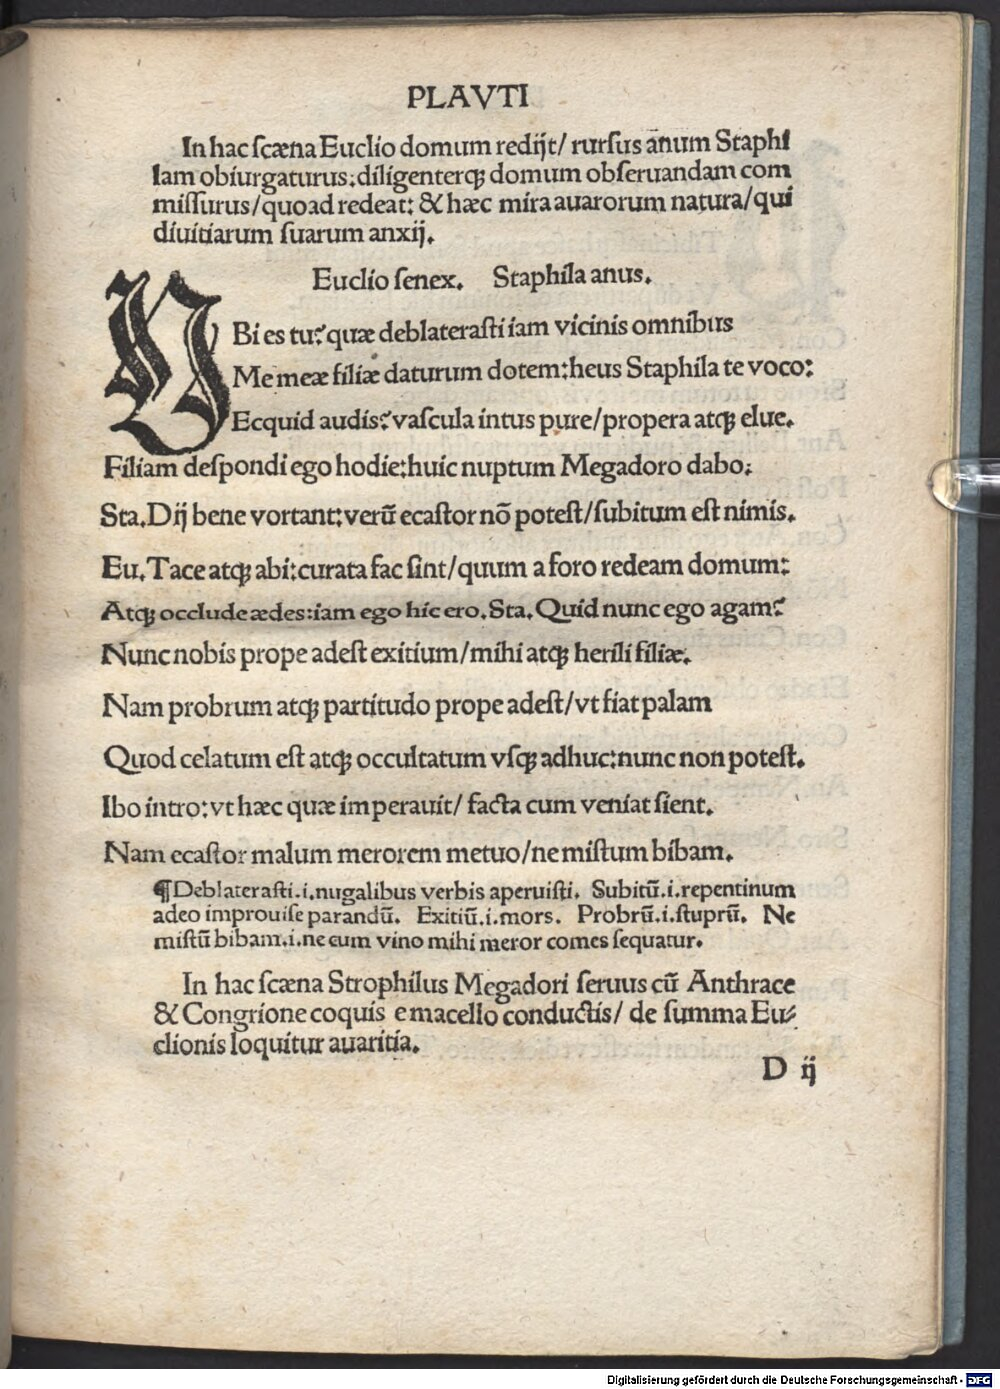 PLAVTI
In hac scæna Euclio domum redijt/ rursus anum Staphi
lam obiurgaturus: diligenterqꝫ domum obseruandam com
missurus/quoad redeat: & hæc mira auarorum natura/qui
diuitiarum suarum anxij.
Euclio senex. Staphila anus.
VBi es tu? quæ deblaterasti iam vicinis omnibus
Me meæ filiæ daturum dotem: heus Staphila te voco:
Ecquid audis? vascula intus pure/propera atqꝫ elue.
Filiam despondi ego hodie: huic nuptum Megadoro dabo.
Sta. Dij bene vortant: verū ecastor nō potest/subitum est nimis.
Eu. Tace atqꝫ abi: curata fac sint/quum a foro redeam domum:
Atqꝫ occlude ædes: iam ego hic ero. Sta. Quid nunc ego agam?
Nunc nobis prope adest exitium/mihi atqꝫ herili filiæ.
Nam probrum atqꝫ partitudo prope adest/vt fiat palam
Quod celatum est atqꝫ occultatum vsqꝫ adhuc: nunc non potest.
Ibo intro: vt hæc quæ imperauit/ facta cum veniat sient.
Nam ecastor malum merorem metuo/ne mistum bibam.
¶ Deblaterasti .i. nugalibus verbis aperuisti. Subitū .i. repentinum
adeo improuise parandū. Exitiū .i. mors. Probrū .i. stuprū. Ne
mistū bibam .i. ne cum vino mihi meror comes sequatur.
In hac scæna Strophilus Megadori seruus cū Anthrace
& Congrione coquis e macello conductis/ de summa Eu⸗
clionis loquitur auaritia.
D ij
Digitalisierung gefördert durch die Deutsche Forschungsgemeinschaft - DFG